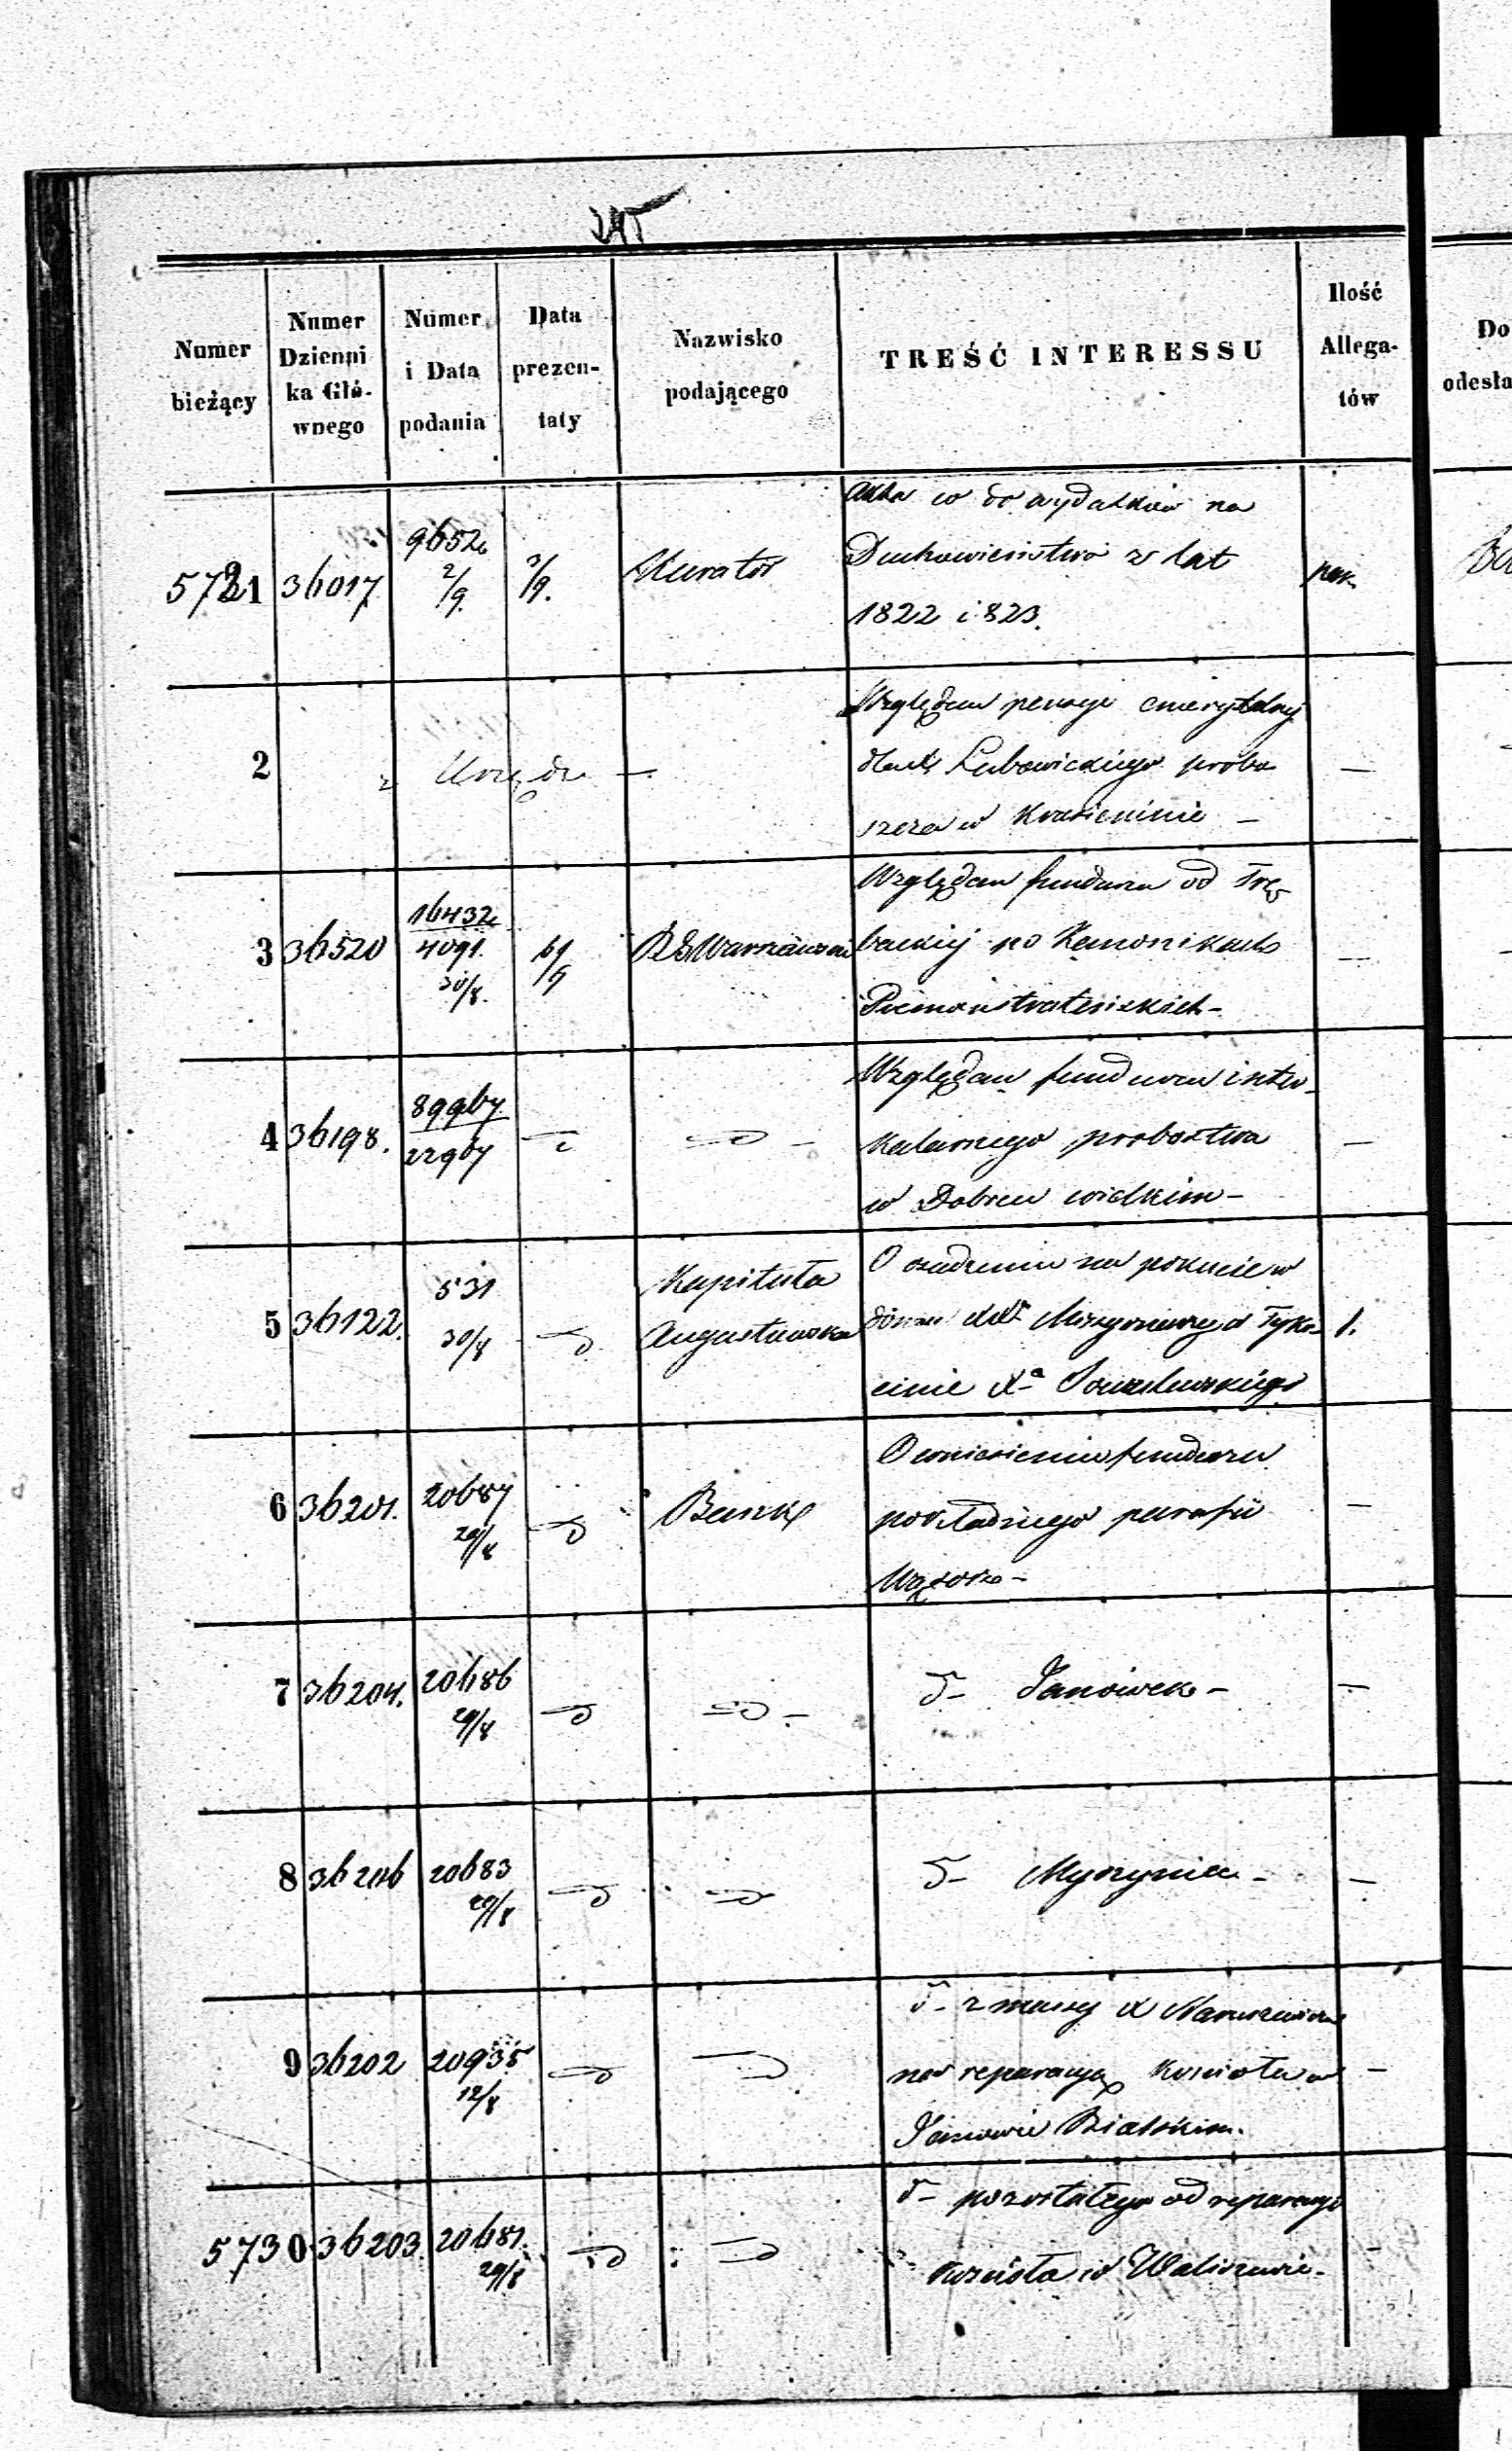 245
Numer
bieżący
Numer
Dzienni
ka Głó-
wnego
Numer
i Data
podania
Data
prezen-
taty
Nazwisko
podającego
TREŚĆ INTERESSU
Ilość
Allega-
tów
Do
odesła
5721 36017 9652 2/9 3/9. Kurator
Akta w do wydatków na
Duchowieństwo z lat
1822 i 823.
2 z Urzędu —
Względem pensyi emerytalnej
Lubowickiego probo
szcza w Krasieninie —
3 36520 16432 4091. 30/8. R G Warszawski
Względem funduszu od Trę
backiej po Kanonikach
Premonstrateńskich —
4 36198. 89967 22967
Względem funduszu inter
kalarnego probostwa
w Dobrem wielkim —
5 36122. 531 30/8 Kapituła Augustowska 1.
O osadzeniu na pokucie w
domu Missyonarzy w Tyko
cinie Xa
6 36201. 20687 29/8 Bank
O wniesieniu funduszu
pokładnego parafii
Wąsosz —
7 36204. 20686 29/8
d— Janówek —
8 36206 20683 29/8
d— Myszyniec —
9 36202 20935 12/8
d— z massy X Naruszewicza
na reparacyą kościoła w
Janowie Bialskim.
5730 36203. 20681. 29/8
d— pozostałego od reparacyi
kościoła w Waliszewie —